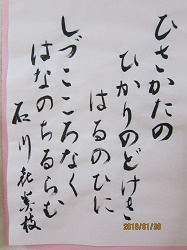 ひさかたの
ひかりのどけき
はるのひに
しづこころなく
はなのちるらむ
石川喜美枝
2019/01/30